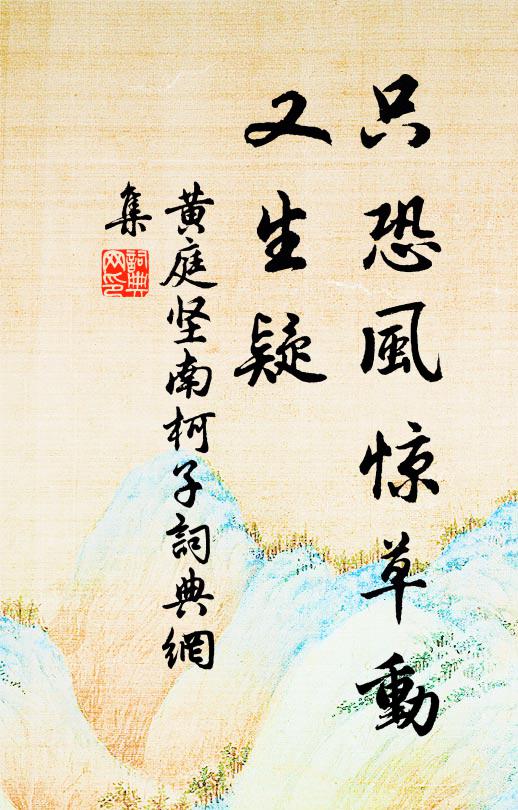 只恐風惊草動
又生疑
黄庭坚南柯子詞典網
集
詞典
网印